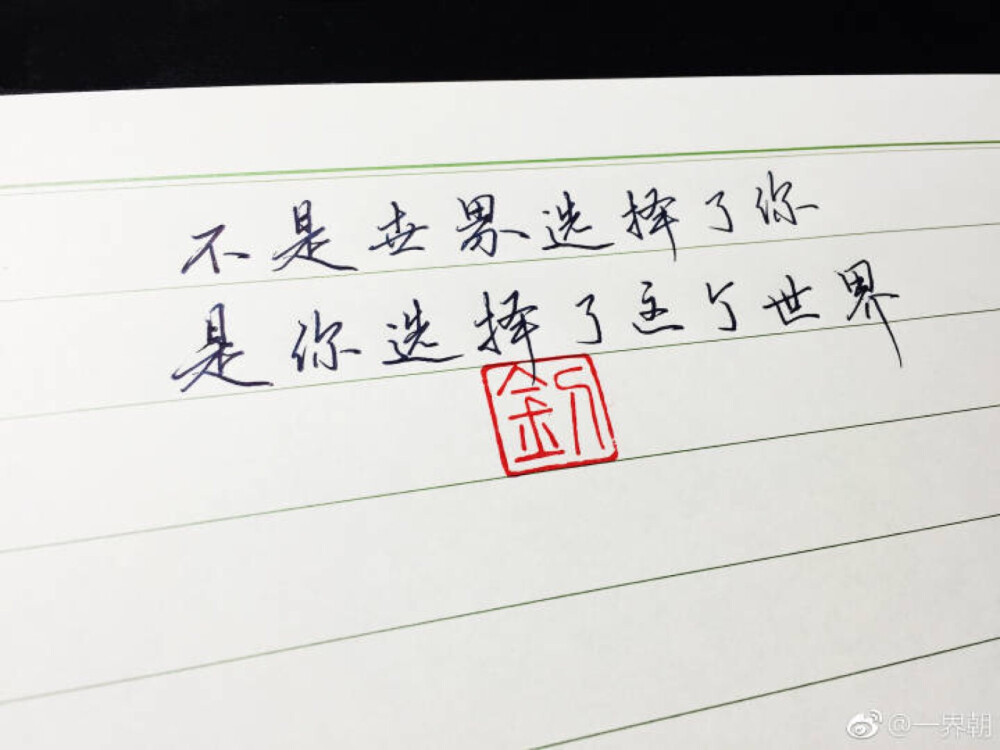 不是世界选择了你
是你选择了这个世界
@一界朝